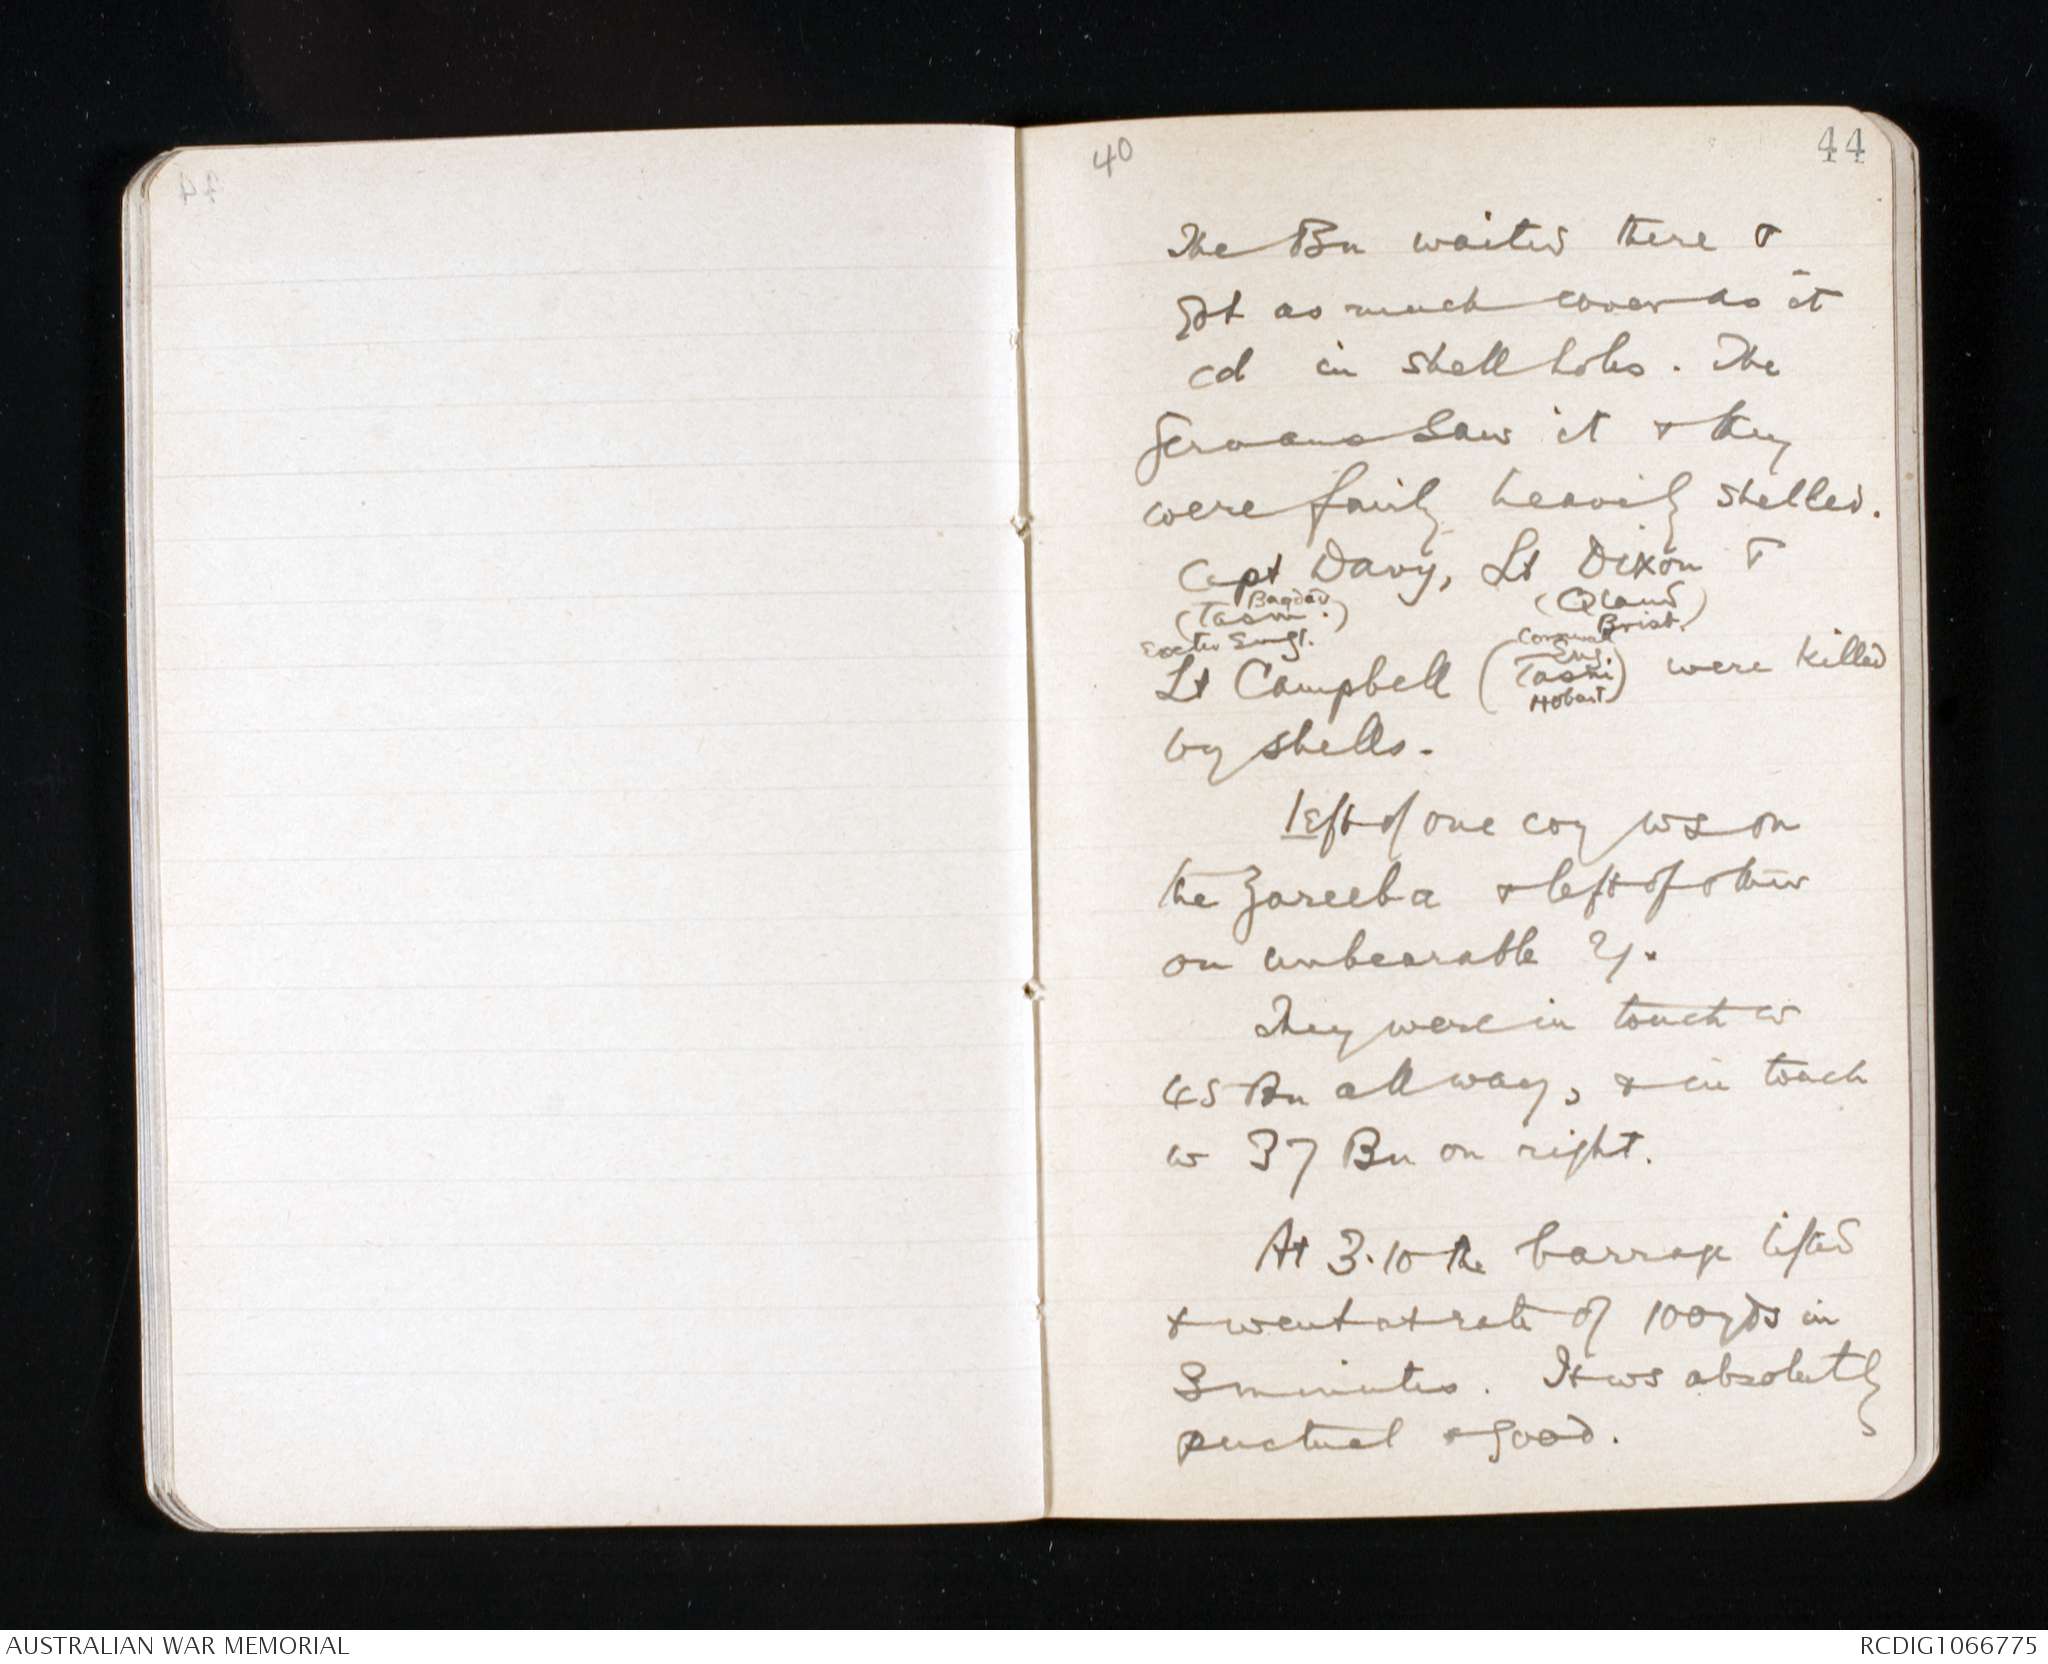 40
44
The Bn waited there &
got as much cover as it
cd in shell holes. The
Germans saw it & they
were fairly heavily shelled.
Capt Davy, Lt Dixon &
Bagdad
(Tasm.) (Qland
Exeter Engl. Brisb.)
Cornwall
Eng.
Lt Campbell (Tasm were killed
Hobart)
by shells.
left of one coy ws on
the Zareeba & left of other
on unbearable
They were in touch w
45 Bn all way, & in touch
w 37 Bn on right.
At 3.10 the barrage lifted
& went at rate of 100 yds in
3 minutes. It ws absolutely
punctual & good.
AUSTRALIAN WAR MEMORIAL
RCDIG1066775